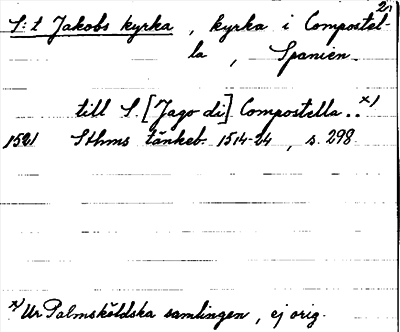 2.
S:t Jakobs kyrka , kyrka i Compostel-
la , Spanien.
till S. [Jago di] Compostella..x)
1521 Sthms tänkeb. 1514-24 , s. 298.
x) Ur Palmsköldska samlingen , ej orig.